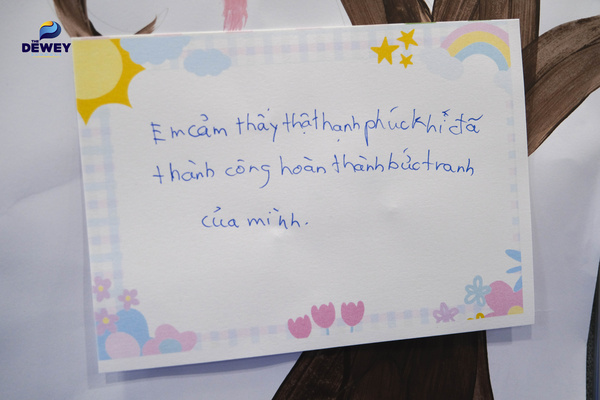 THE
DEWEY
Em cảm thấy thật hạnh phúc khi đã
thành công hoàn thành bức tranh
của mình.